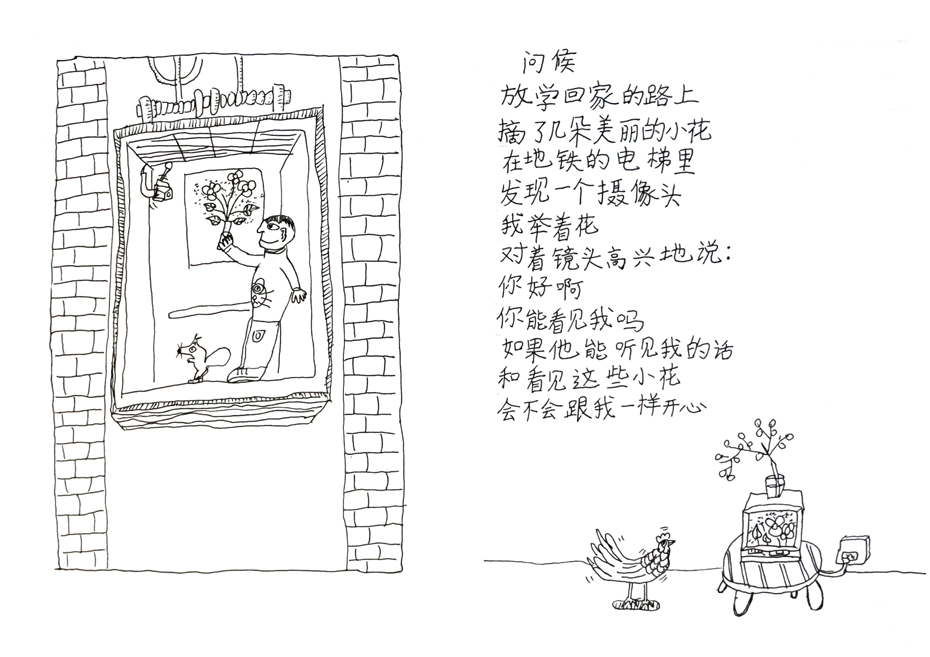 问候
放学回家的路上
摘了几朵美丽的小花
在地铁的电梯里
发现一个摄像头
我举着花
对着镜头高兴地说：
你好啊
你能看见我吗
如果他能听见我的话
和看见这些小花
会不会跟我一样开心